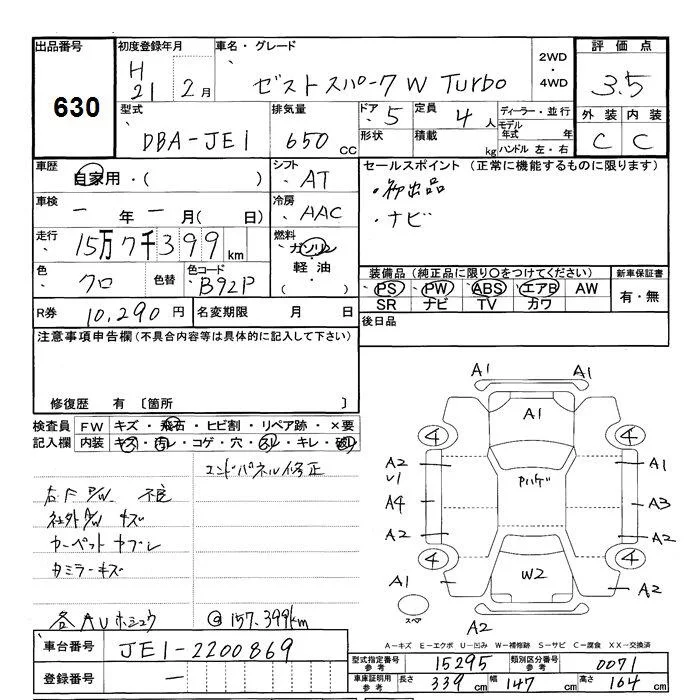 出品番号
630
初度登録年月
H
21 2月
車名・グレード
ゼスト スパーク W Turbo
2WD
・
4WD
評価点
3.5
型式
DBA-JE1
排気量
650 cc
ドア 5
形状
定員 4人
積載 kg
ディーラー・並行
モデル
年式 年
ハンドル 左・右
外装 内装
C C
車歴
自家用・( )
シフト
AT
車検
一年一月(日)
冷房
AAC
走行
15万7千399km
燃料
ガソリン
・
軽油
( )
色
クロ
色替
色コード
B92P
R券 10,290円
名変期限 月 日
セールスポイント (正常に機能するものに限ります)
・初出品
・ナビ
装備品 (純正品に限り○をつけてください)
PS PW ABS エアB AW
SR ナビ TV カワ
新車保証書
有・無
後日品
注意事項申告欄(不具合内容等は具体的に記入して下さい)
修復歴 有 〔箇所 〕
検査員
記入欄
FW キズ・飛石・ヒビ割・リペア跡・×要
内装 キズ・汚レ・コゲ・穴・スレ・キレ・破レ
エンドパネル修正
右F P/W 不良
社外A/W キズ
カーペットヤブレ
各AUホシュウ
@157,399km
A1 A1
A1
4 4
A2 Pハゲ A1
A4 A3
A2 A2
4 4
A1 W2 A2
スペア
A2
A-キズ E-エクボ U-凹み W-補修跡 S-サビ C-腐食 XX-交換済
車台番号 JE1-2200869
登録番号 一
型式指定番号
参考
15295
類別区分番号
参考
0071
車庫証明用
参考
長さ 339cm 幅 147cm 高さ 164cm